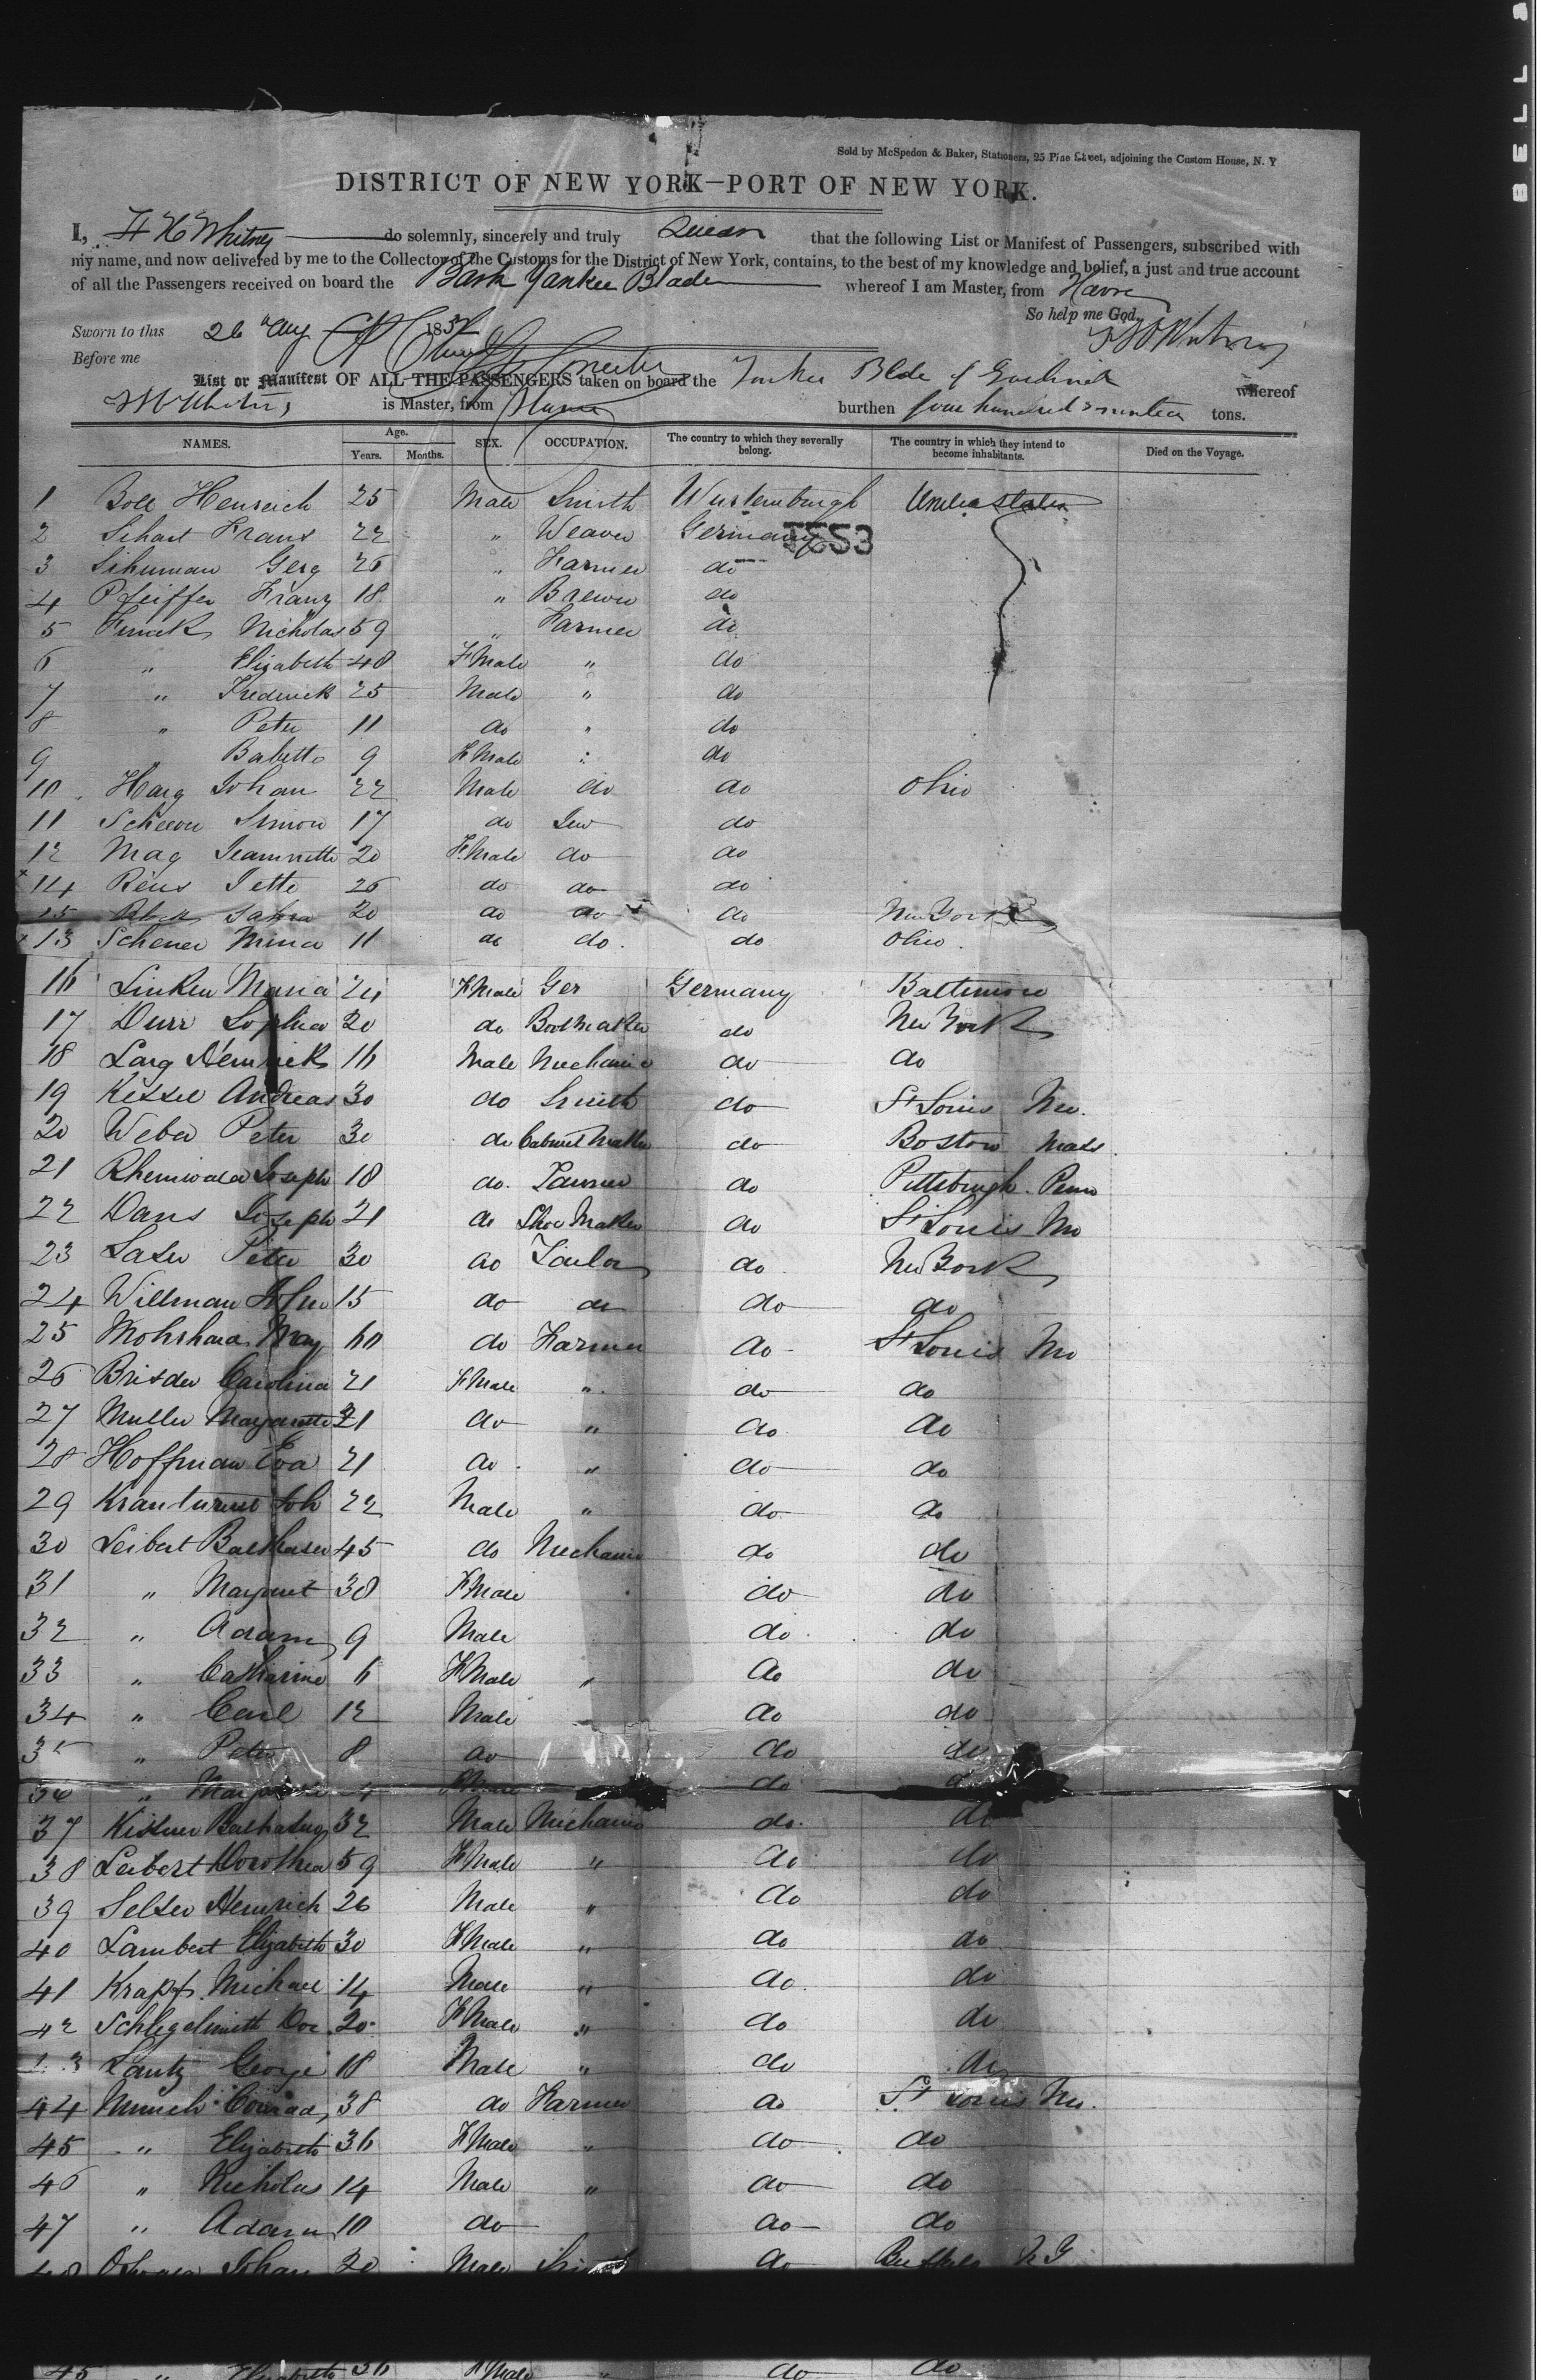 BELL &
Sold by McSpedon & Baker, Stationers, 25 Pine Street, adjoining the Custom House, N. Y
DISTRICT OF NEW YORK—PORT OF NEW YORK.
I, H H Whitney do solemnly, sincerely and truly Swear that the following List or Manifest of Passengers, subscribed with
my name, and now delivered by me to the Collector of the Customs for the District of New York, contains, to the best of my knowledge and belief, a just and true account
of all the Passengers received on board the Bark Yankee Blade whereof I am Master, from Havre
So help me God,
Sworn to this 26 Aug 185
Before me
List or Manifest OF ALL THE PASSENGERS taken on board the Yankee Blade of whereof
is Master, from Havre burthen four hundred & nineteen tons.
NAMES. Age. Years. Months. SEX. OCCUPATION. The country to which they severally belong. The country in which they intend to become inhabitants. Died on the Voyage.
1 Boll Henreich 25 Male Smith Wurtemburgh United States
2 Sihart Frans 22 " Weaver Germany
3 Sihuman Gerg 26 " Farmer do
4 Pfeiffer Franz 18 " Brewer do
5 Finck Nicholas 59 " Farmer do
6 " Elizabeth 48 F Male " do
7 " Frederick 25 Male " do
8 " Peter 11 do " do
9 " Babette 9 F Male " do
10 Harg Johan 22 Male do do Ohio
11 Simon 17 do Jew do
12 Mag Jeannette 20 F. Male do do
14 Reus Jette 26 do do do
15 Sahra 20 do do do New York
13 Schener Mina 11 do do. do Ohio.
16 Linken Maria 24 F Male Ger Germany Baltimore
17 Durr Sophia 20 do Bootmaker do New York
18 Larg Henrick 16 Male Mechanic do do
19 Kessel Andreas 30 do Smith do St Louis Mo.
20 Weber Peter 30 do Cabinet Maker do Boston Mass.
21 Joseph 18 do. do Pittsburgh. Penn
22 Dans Joseph 21 do Shoe Maker do St Louis Mo
23 Peter 30 do Tailor do New York
24 Willman John 15 do do do do
25 Mohrhard May 60 do Farmer do St Louis Mo
26 Carolina 21 F Male " do do
27 Muller Margarette 21 do " do do
28 Hoffman Eva 21 do " do do
29 Joh 22 Male " do do
30 Leibert Balthaser 45 do Mechanic do do
31 " Margaret 38 F Male do do
32 " Adam 9 Male do do
33 " Catharine 6 F Male " do do
34 " Carl 12 Male do do
35 " Peter 8 do do do
36 " 4 do
37 Balthaser 32 Male Mechanic do. do
38 Leibert Dorothea 59 F Male " do do
39 Selser Henrich 26 Male " do do
40 Lambert Elizabeth 30 F Male " do do
41 Krapf Michael 14 Male " do. do
42 Schlegelmith Dor. 20 F Male " do do
43 Lantz George 18 Male " do do
44 Munch Conrad, 38 do Farmer do St Louis Mo.
45 " Elizabeth 36 F Male " do do
46 " Nicholas 14 Male " do do
47 " Adam 10 do do do
48 Johan 20 Male do Buffalo N Y
45 " Elizabeth 36 F Male " do do